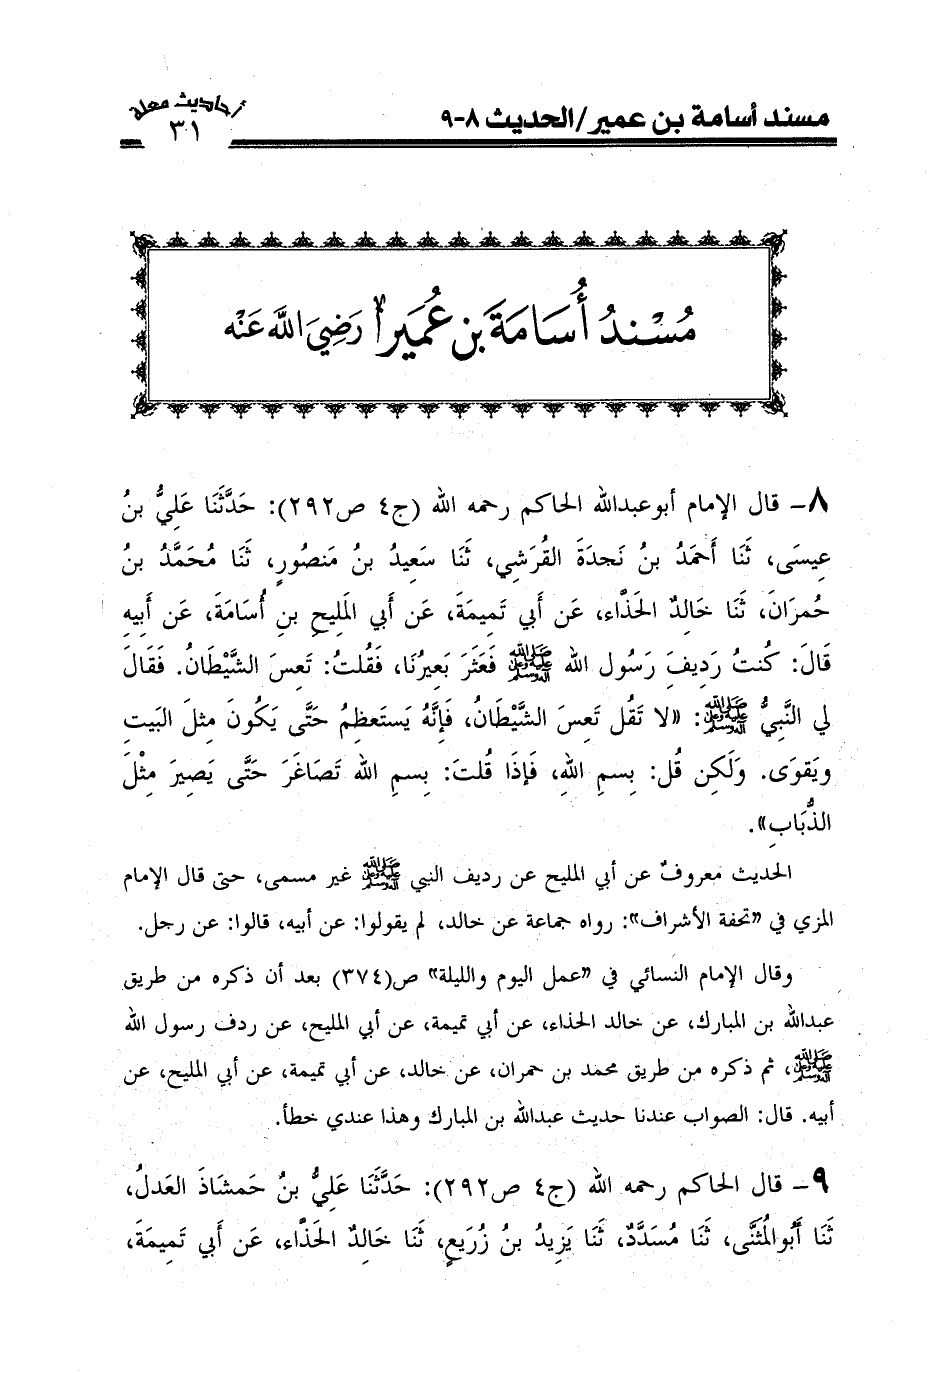 مسند أسامة بن عمير/الحديث ٨-٩
أحاديث معلة
٣١
مُسْنَدُ أُسَامَةَ بن عُمَيرٍ رَضِيَ اللَّهُ عَنْه
٨- قال الإمام أبوعبدالله الحاكم رحمه الله (ج٤ ص٢٩٢): حَدَّثَنَا عَلِيُّ بنُ
عِيسَى، ثَنَا أَحمَدُ بنُ نَجدَةَ القُرَشِي، ثَنَا سَعِيدُ بنُ مَنصُورٍ، ثَنَا مُحَمَّدُ بنُ
حُمرَانَ، ثَنَا خَالِدٌ الحَذَّاء، عَن أَبي تَمِيمَةَ، عَن أَبي المَلِيحِ بنِ أُسَامَةَ، عَن أَبِيهِ
قَالَ: كُنتُ رَدِيفَ رَسُول الله ﷺ فَعَثَرَ بَعِيرُنَا، فَقُلتُ: تَعِسَ الشَّيْطَانُ. فَقَالَ
لي النَّبِيُّ ﷺ: «لا تَقُل تَعِسَ الشَّيْطَانُ، فَإِنَّهُ يَستَعظِمُ حَتَّى يَكُونَ مِثلَ البَيتِ
ويَقوَى. وَلَكِن قُل: بِسمِ اللهِ، فَإِذَا قُلتَ: بِسمِ اللهِ تَصَاغَرَ حَتَّى يَصِيرَ مِثْلَ
الذُّبَابِ».
الحديث معروفٌ عن أبي المليح عن رديف النبي ﷺ غير مسمى، حتى قال الإمام
المزي في «تحفة الأشراف»: رواه جماعة عن خالد، لم يقولوا: عن أبيه، قالوا: عن رجل.
وقال الإمام النسائي في «عمل اليوم والليلة» ص(٣٧٤) بعد أن ذكره من طريق
عبدالله بن المبارك، عن خالد الحذاء، عن أبي تميمة، عن أبي المليح، عن ردف رسول الله
ﷺ، ثم ذكره من طريق محمد بن حمران، عن خالد، عن أبي تميمة، عن أبي المليح، عن
أبيه. قال: الصواب عندنا حديث عبدالله بن المبارك وهذا عندي خطأ.
٩- قال الحاكم رحمه الله (ج٤ ص٢٩٢): حَدَّثَنَا عَلِيُّ بنُ حَمشَاذَ العَدلُ،
ثَنَا أَبُوالمُثَنَّى، ثَنَا مُسَدَّدٌ، ثَنَا يَزِيدُ بنُ زُرَيعٍ، ثَنَا خَالِدٌ الحَذَّاء، عَن أَبي تَمِيمَةَ،